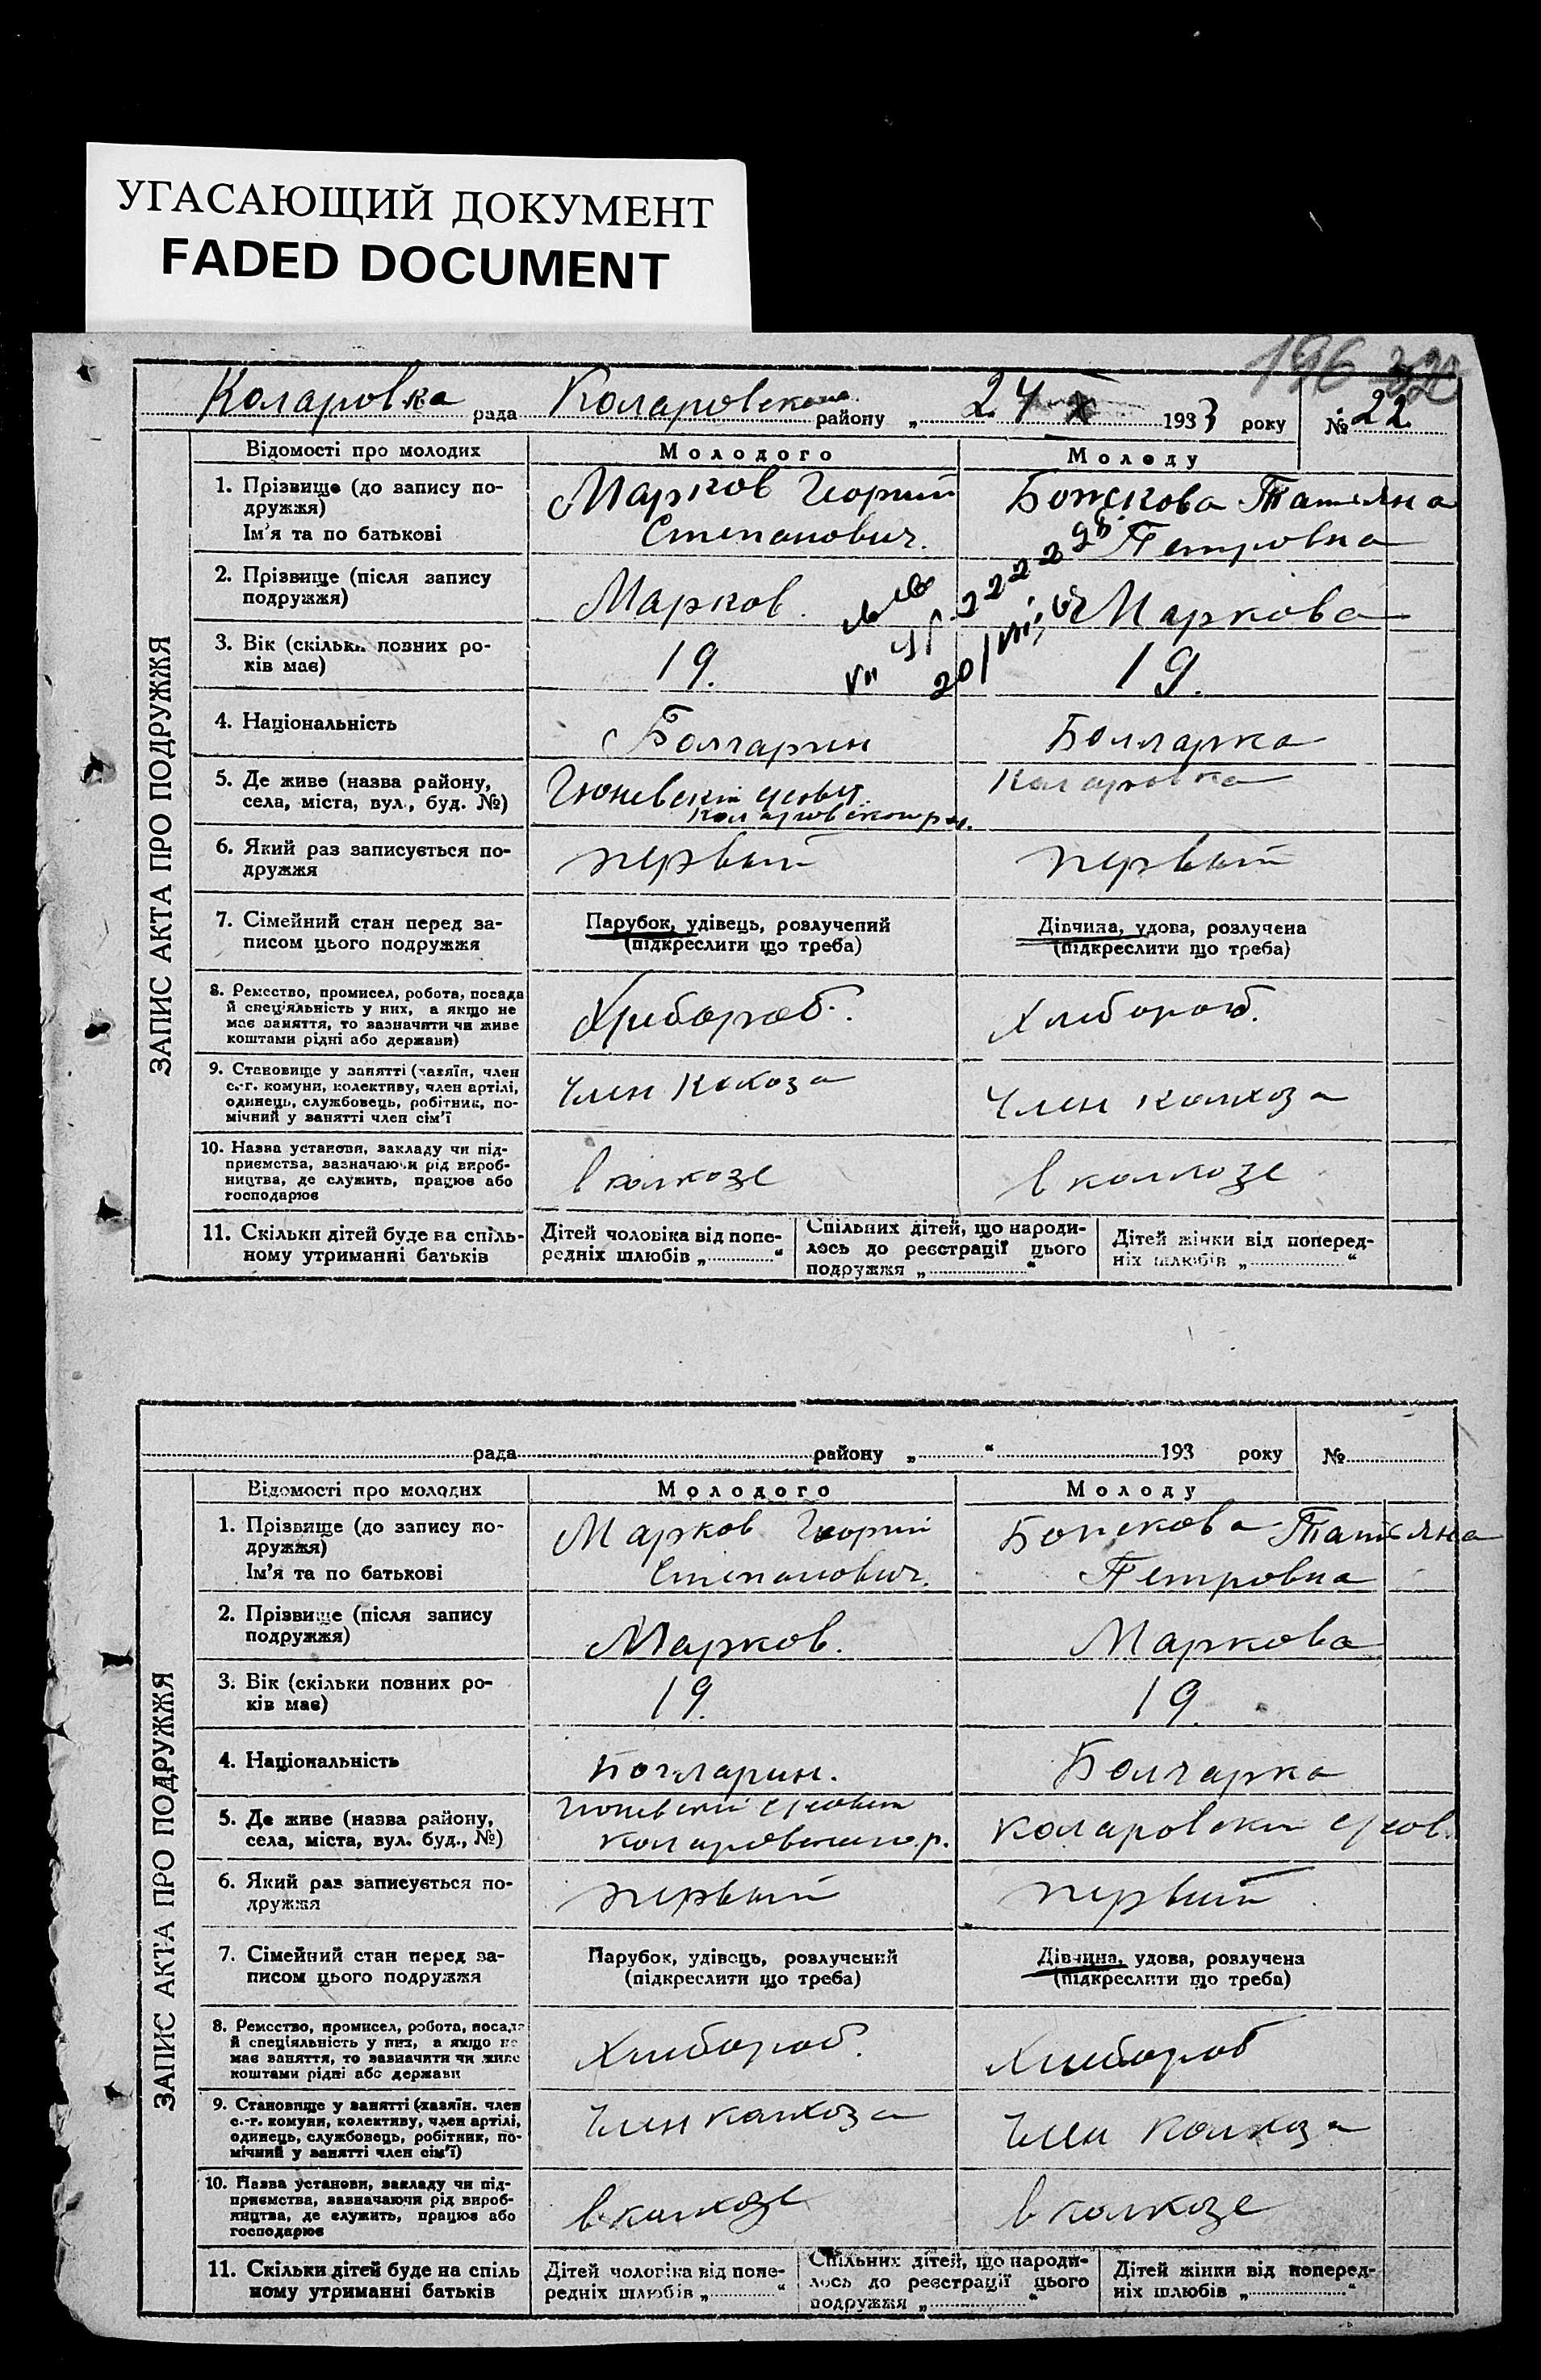 УГАСАЮЩИЙ ДОКУМЕНТ
FADED DOCUMENT
196
Коларовка рада Коларовского району „ 24 X 1933 року № 22
ЗАПИС АКТА ПРО ПОДРУЖЖЯ
Відомості про молодих
Молодого
Молоду
1. Прізвище (до запису по-
дружжя)
Ім'я та по батькові
Марков Георгий
Степанович.
Божкова Татияна
Петровна
2. Прізвище (після запису
подружжя)
Марков.
Маркова
3. Вік (скільки повних ро-
ків має)
19.
19.
4. Національність
Болгарин
Болгарка
5. Де живе (назва району,
села, міста, вул., буд. №)
Гюневский
Коларовка
6. Який раз записується по-
дружжя
первый
первый
7. Сімейний стан перед за-
писом цього подружжя
Парубок, удівець, розлучений
(підкреслити що треба)
Дівчина, удова, розлучена
(підкреслити що треба)
8. Ремество, промисел, робота, посада
й спеціяльність у них, а якщо не
має заняття, то зазначити чи живе
коштами рідні або держави)
Хлебороб.
Хлебороб.
9. Становище у занятті (хазяїн, член
с.-г. комуни, колективу, член артілі,
одинець, службовець, робітник, по-
мічний у занятті член сім'ї
член
член колхоза
10. Назва установи, закладу чи під-
приємства, зазначаючи рід вироб-
ництва, де служить, працює або
господарює
в колхозе
в колхозе
11. Скільки дітей буде на спіль-
ному утриманні батьків
Дітей чоловіка від попе-
редніх шлюбів „ “
Спільних дітей, що народи-
лось до реєстрації цього
подружжя „ “
Дітей жінки від поперед-
ніх шлюбів „ “
рада району „ “ 193 року №
ЗАПИС АКТА ПРО ПОДРУЖЖЯ
Відомості про молодих
Молодого
Молоду
1. Прізвище (до запису по-
дружжя)
Ім'я та по батькові
Марков Георгий
Степанович.
Божкова Татияна
Петровна
2. Прізвище (після запису
подружжя)
Марков.
Маркова
3. Вік (скільки повних ро-
ків має)
19.
19.
4. Національність
Болгарин.
Болгарка
5. Де живе (назва району,
села, міста, вул. буд., №)
Гюневский
Коларовского р.
Коларовский
6. Який раз записується по-
дружжя
первый
первый
7. Сімейний стан перед за-
писом цього подружжя
Парубок, удівець, розлучений
(підкреслити що треба)
Дівчина, удова, розлучена
(підкреслити що треба)
8. Ремество, промисел, робота, посада
й спеціяльність у них, а якщо не
має заняття, то зазначити чи живе
коштами рідні або держави
Хлебороб.
Хлебороб
9. Становище у занятті (хазяїн. член
с.-г. комуни, колективу, член артілі,
одинець, службовець, робітник, по-
мічний у занятті член сім'ї)
член колхоза
член колхоза
10. Назва установи, закладу чи під-
приємства, зазначаючи рід вироб-
ництва, де служить, працює або
господарює
в колхозе
в колхозе
11. Скільки дітей буде на спіль
ному утриманні батьків
Дітей чоловіка від попе-
редніх шлюбів „ “
Спільних дітей, що народи-
лось до реєстрації цього
подружжя „ “
Дітей жінки від поперед-
ніх шлюбів „ “